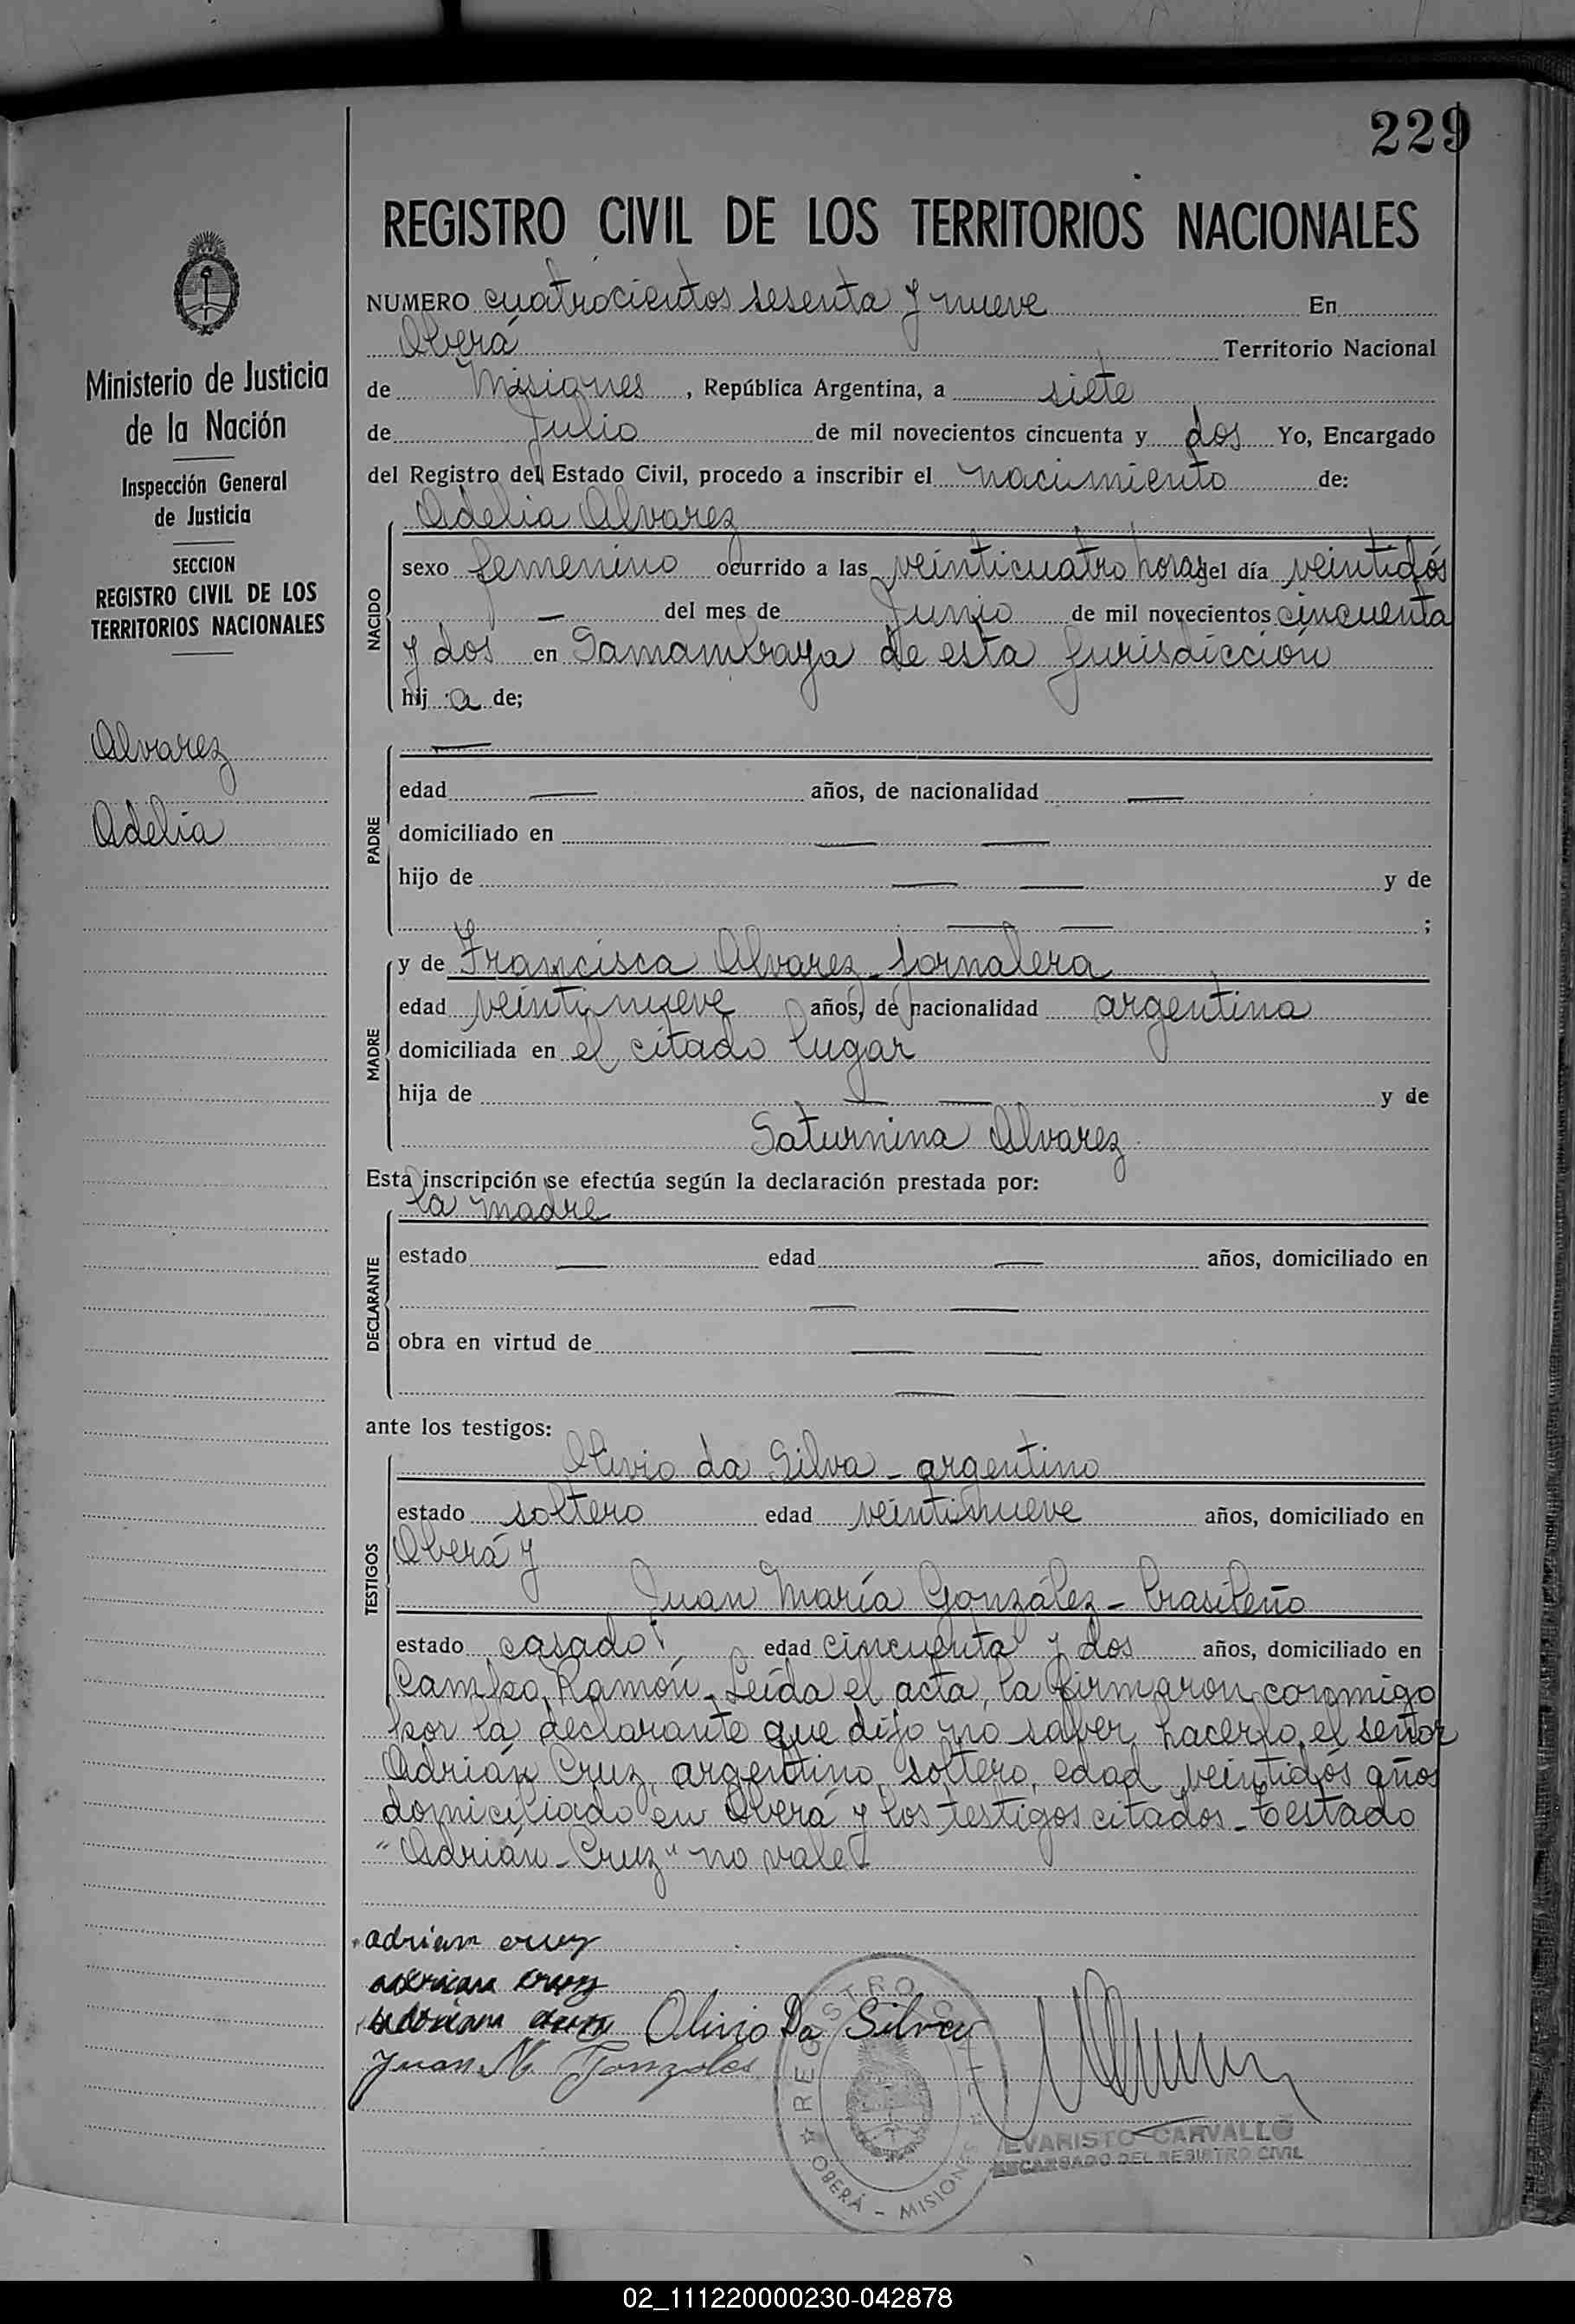 229
REGISTRO CIVIL DE LOS TERRITORIOS NACIONALES
Ministerio de Justicia
de la Nación
Inspección General
de Justicia
SECCION
REGISTRO CIVIL DE LOS
TERRITORIOS NACIONALES
Alvarez
Adelia
NUMERO cuatrocientos sesenta y nueve En
Oberá Territorio Nacional
de Misiones, República Argentina, a siete
de Julio de mil novecientos cincuenta y dos Yo, Encargado
del Registro del Estado Civil, procedo a inscribir el nacimiento de:
NACIDO
Adelia Alvarez
sexo femenino ocurrido a las veinticuatro horas del día veintidós
— del mes de Junio de mil novecientos cincuenta
y dos en Samambaya de esta jurisdicción
hij a de;
PADRE
—
edad — años, de nacionalidad —
domiciliado en — —
hijo de — — y de
— — ;
MADRE
y de Francisca Alvarez - jornalera
edad veintinueve años, de nacionalidad argentina
domiciliada en el citado lugar
hija de — — y de
Saturnina Alvarez
Esta inscripción se efectúa según la declaración prestada por:
DECLARANTE
la madre
estado — edad — años, domiciliado en
— —
obra en virtud de — —
— —
ante los testigos:
TESTIGOS
Olivio da Silva - argentino
estado soltero edad veintinueve años, domiciliado en
Oberá y
Juan María González - brasileño
estado casado edad cincuenta y dos años, domiciliado en
Campo Ramón - Leída el acta, la firmaron conmigo
por la declarante que dijo no saber hacerlo, el señor
Adrián Cruz, argentino, soltero, edad veintidós años
domiciliado en Oberá y los testigos citados - testado
"Adrián - Cruz" no vale.
adrian cruz
adrian cruz
adrian cruz Olivio Da Silva
Juan M. Gonzales
REGISTRO CIVIL
OBERÁ - MISIONES
EVARISTO CARVALLO
ENCARGADO DEL REGISTRO CIVIL
02_111220000230-042878